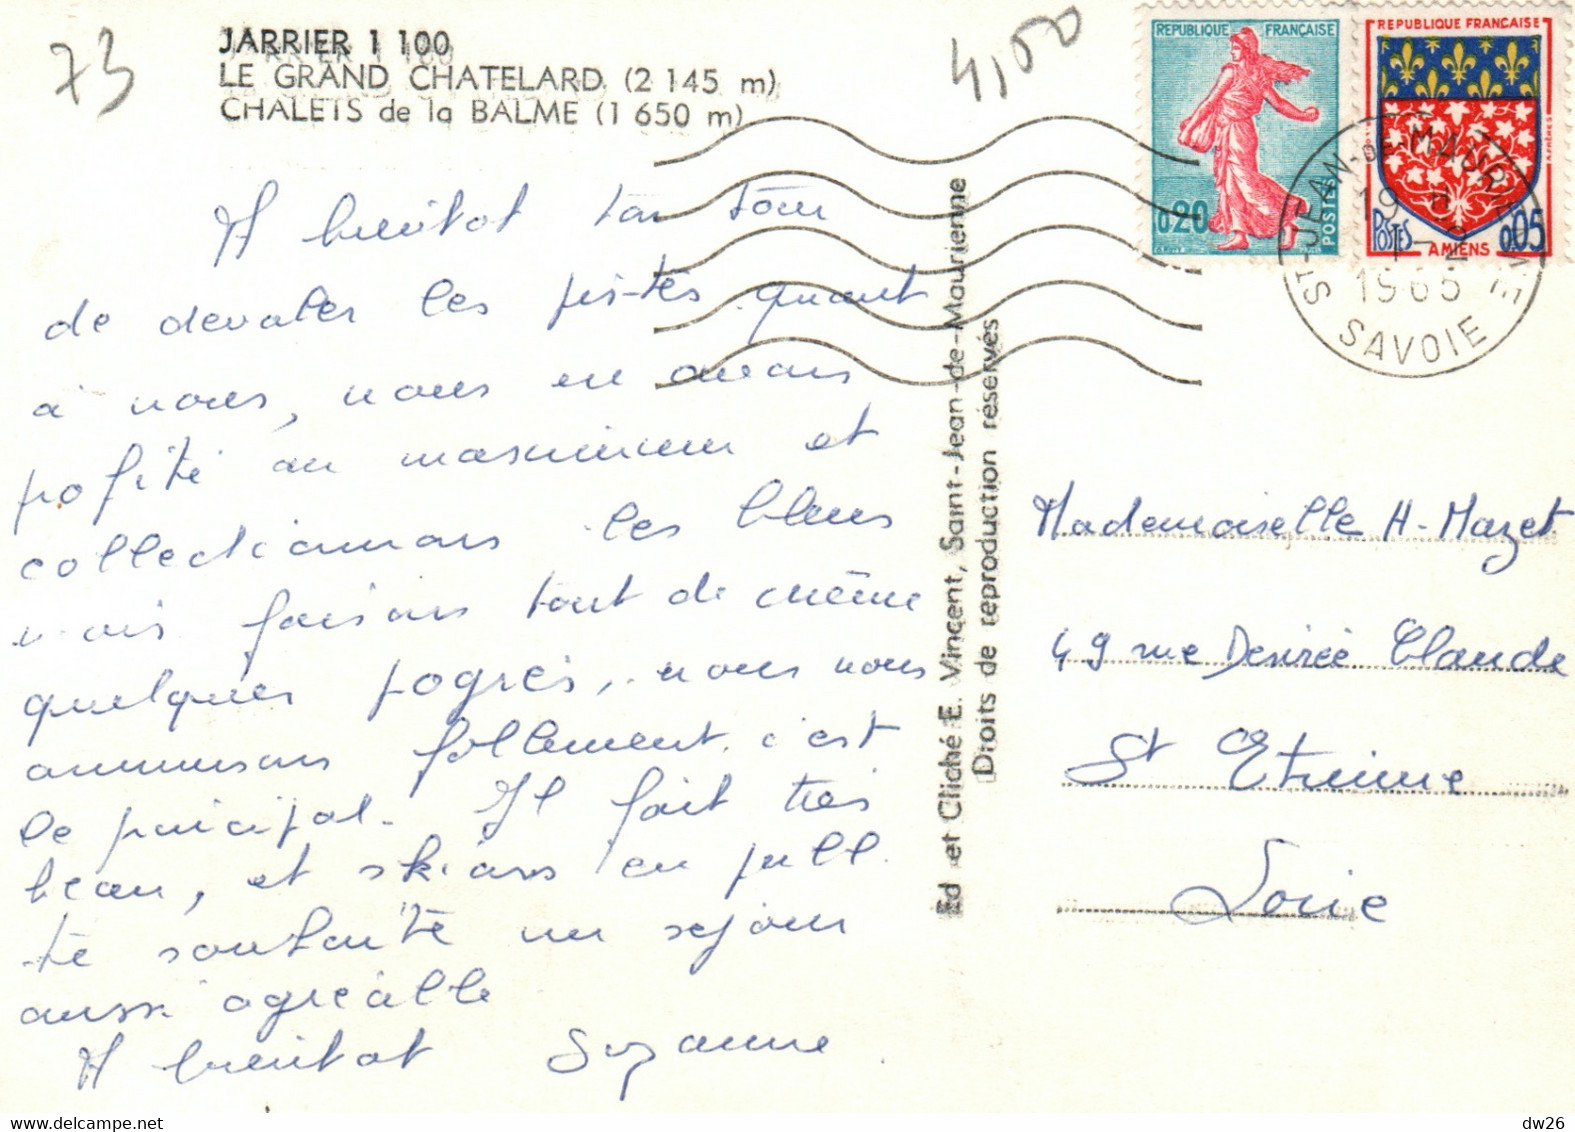 73
JARRIER 1 100
LE GRAND CHATELARD (2 145 m)
CHALETS de la BALME (1 650 m)
4,00
REPUBLIQUE FRANÇAISE
0,20
POSTES
REPUBLIQUE FRANÇAISE
POSTES
AMIENS
0,05
ST-JEAN-DE-MAURIENNE
19
1965
SAVOIE
A bientot ton tour
de devaler les pistes quant
à nous, nous en avons
profité au maximum et
collectionnons les bleus
mais faisons tout de même
quelques progrès, nous nous
amusons follement. c'est
le principal. Il fait très
beau, et skions en pull.
te souhaite un sejour
aussi agréable
A bientot Suzanne
Ed et Cliché E. Vincent, Saint-Jean-de-Maurienne
Droits de reproduction réservés
Mademoiselle H-Mazet
49 rue Desirée Claude
St Etienne
Loire
dw26